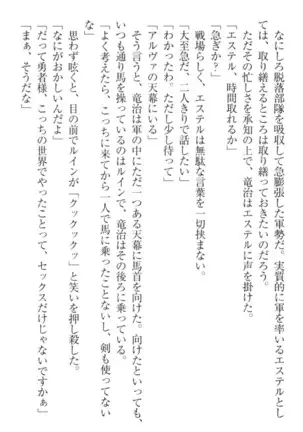 なにしろ脱落部隊を吸収して急膨張した軍勢だ。実質的に軍を率いるエステルとし
ては、取り繕えるところは取り繕っておきたいのだろう。
ただその忙しさを承知の上で、竜治はエステルに声を掛けた。
「エステル、時間取れるか」
「急ぎか？」
「大至急だ、二人きりで話したい」
「わかったわ。ただし少し待って」
「アルヴァの天幕にいる」
戦場らしく、エステルは無駄な言葉を一切挟まない。
そう言うと、竜治は軍の中にただ一つある天幕に馬首を向けた。向けたといっても、
いつも通り馬を操っているのはルインで、竜治はその後ろに乗っている。
「よく考えたら、こっちに来てから一人で馬に乗ったことないし、剣も使ってない
な」
思わず呟くと、目の前でルインが「クックックッ」と笑いを押し殺した。
「なにがおかしいんだよ」
「だって勇者様、こっちの世界でやったことって、セックスだけじゃないですかぁ」
「まぁ、そうだな」